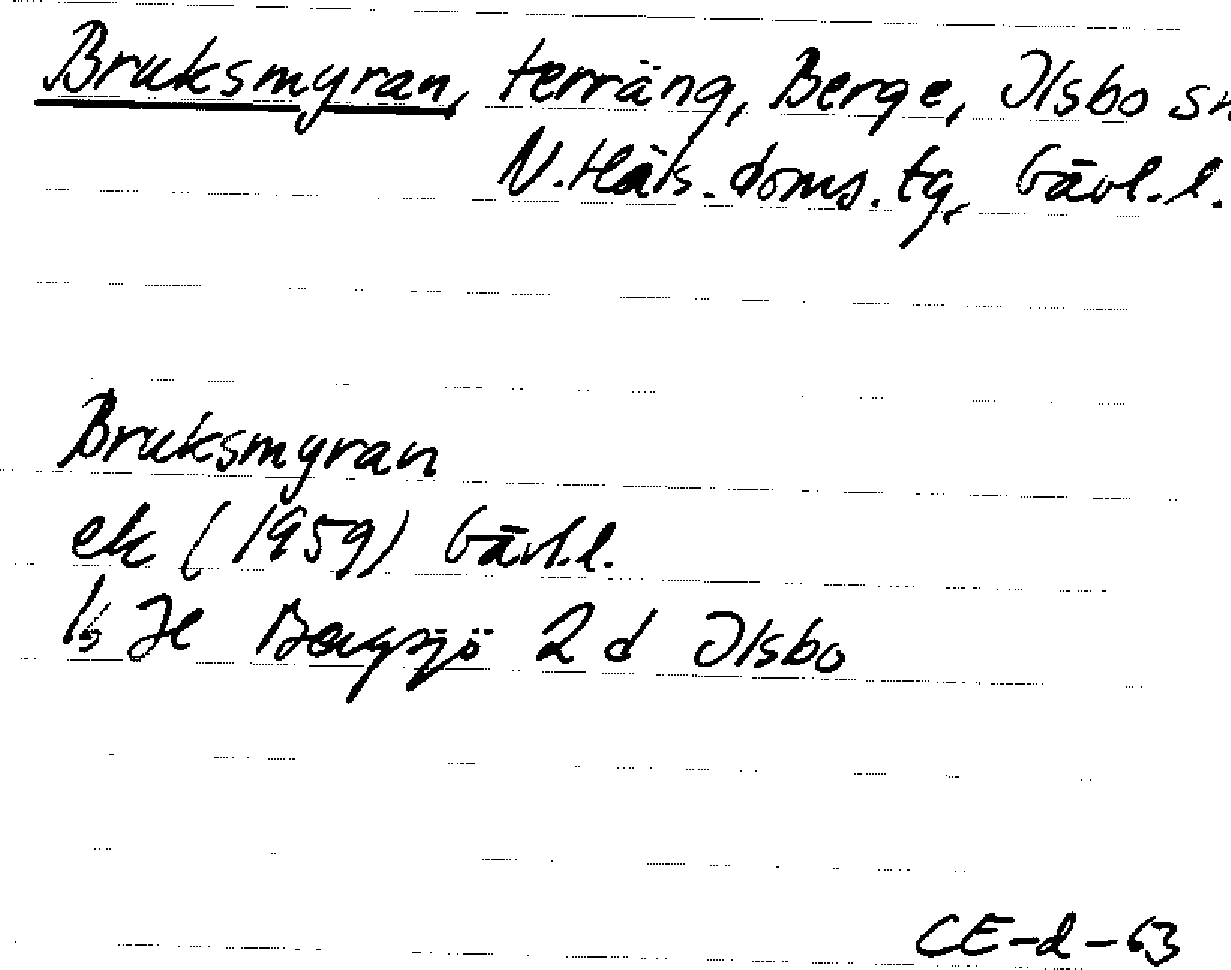 Bruksmyran, terräng, Berge, Ilsbo sn
N. Häls. doms. tg, Gävl. l.
Bruksmyran
ek (1959) Gävl. l.
16 H Bergsjö 2 d Ilsbo
CE-d-63